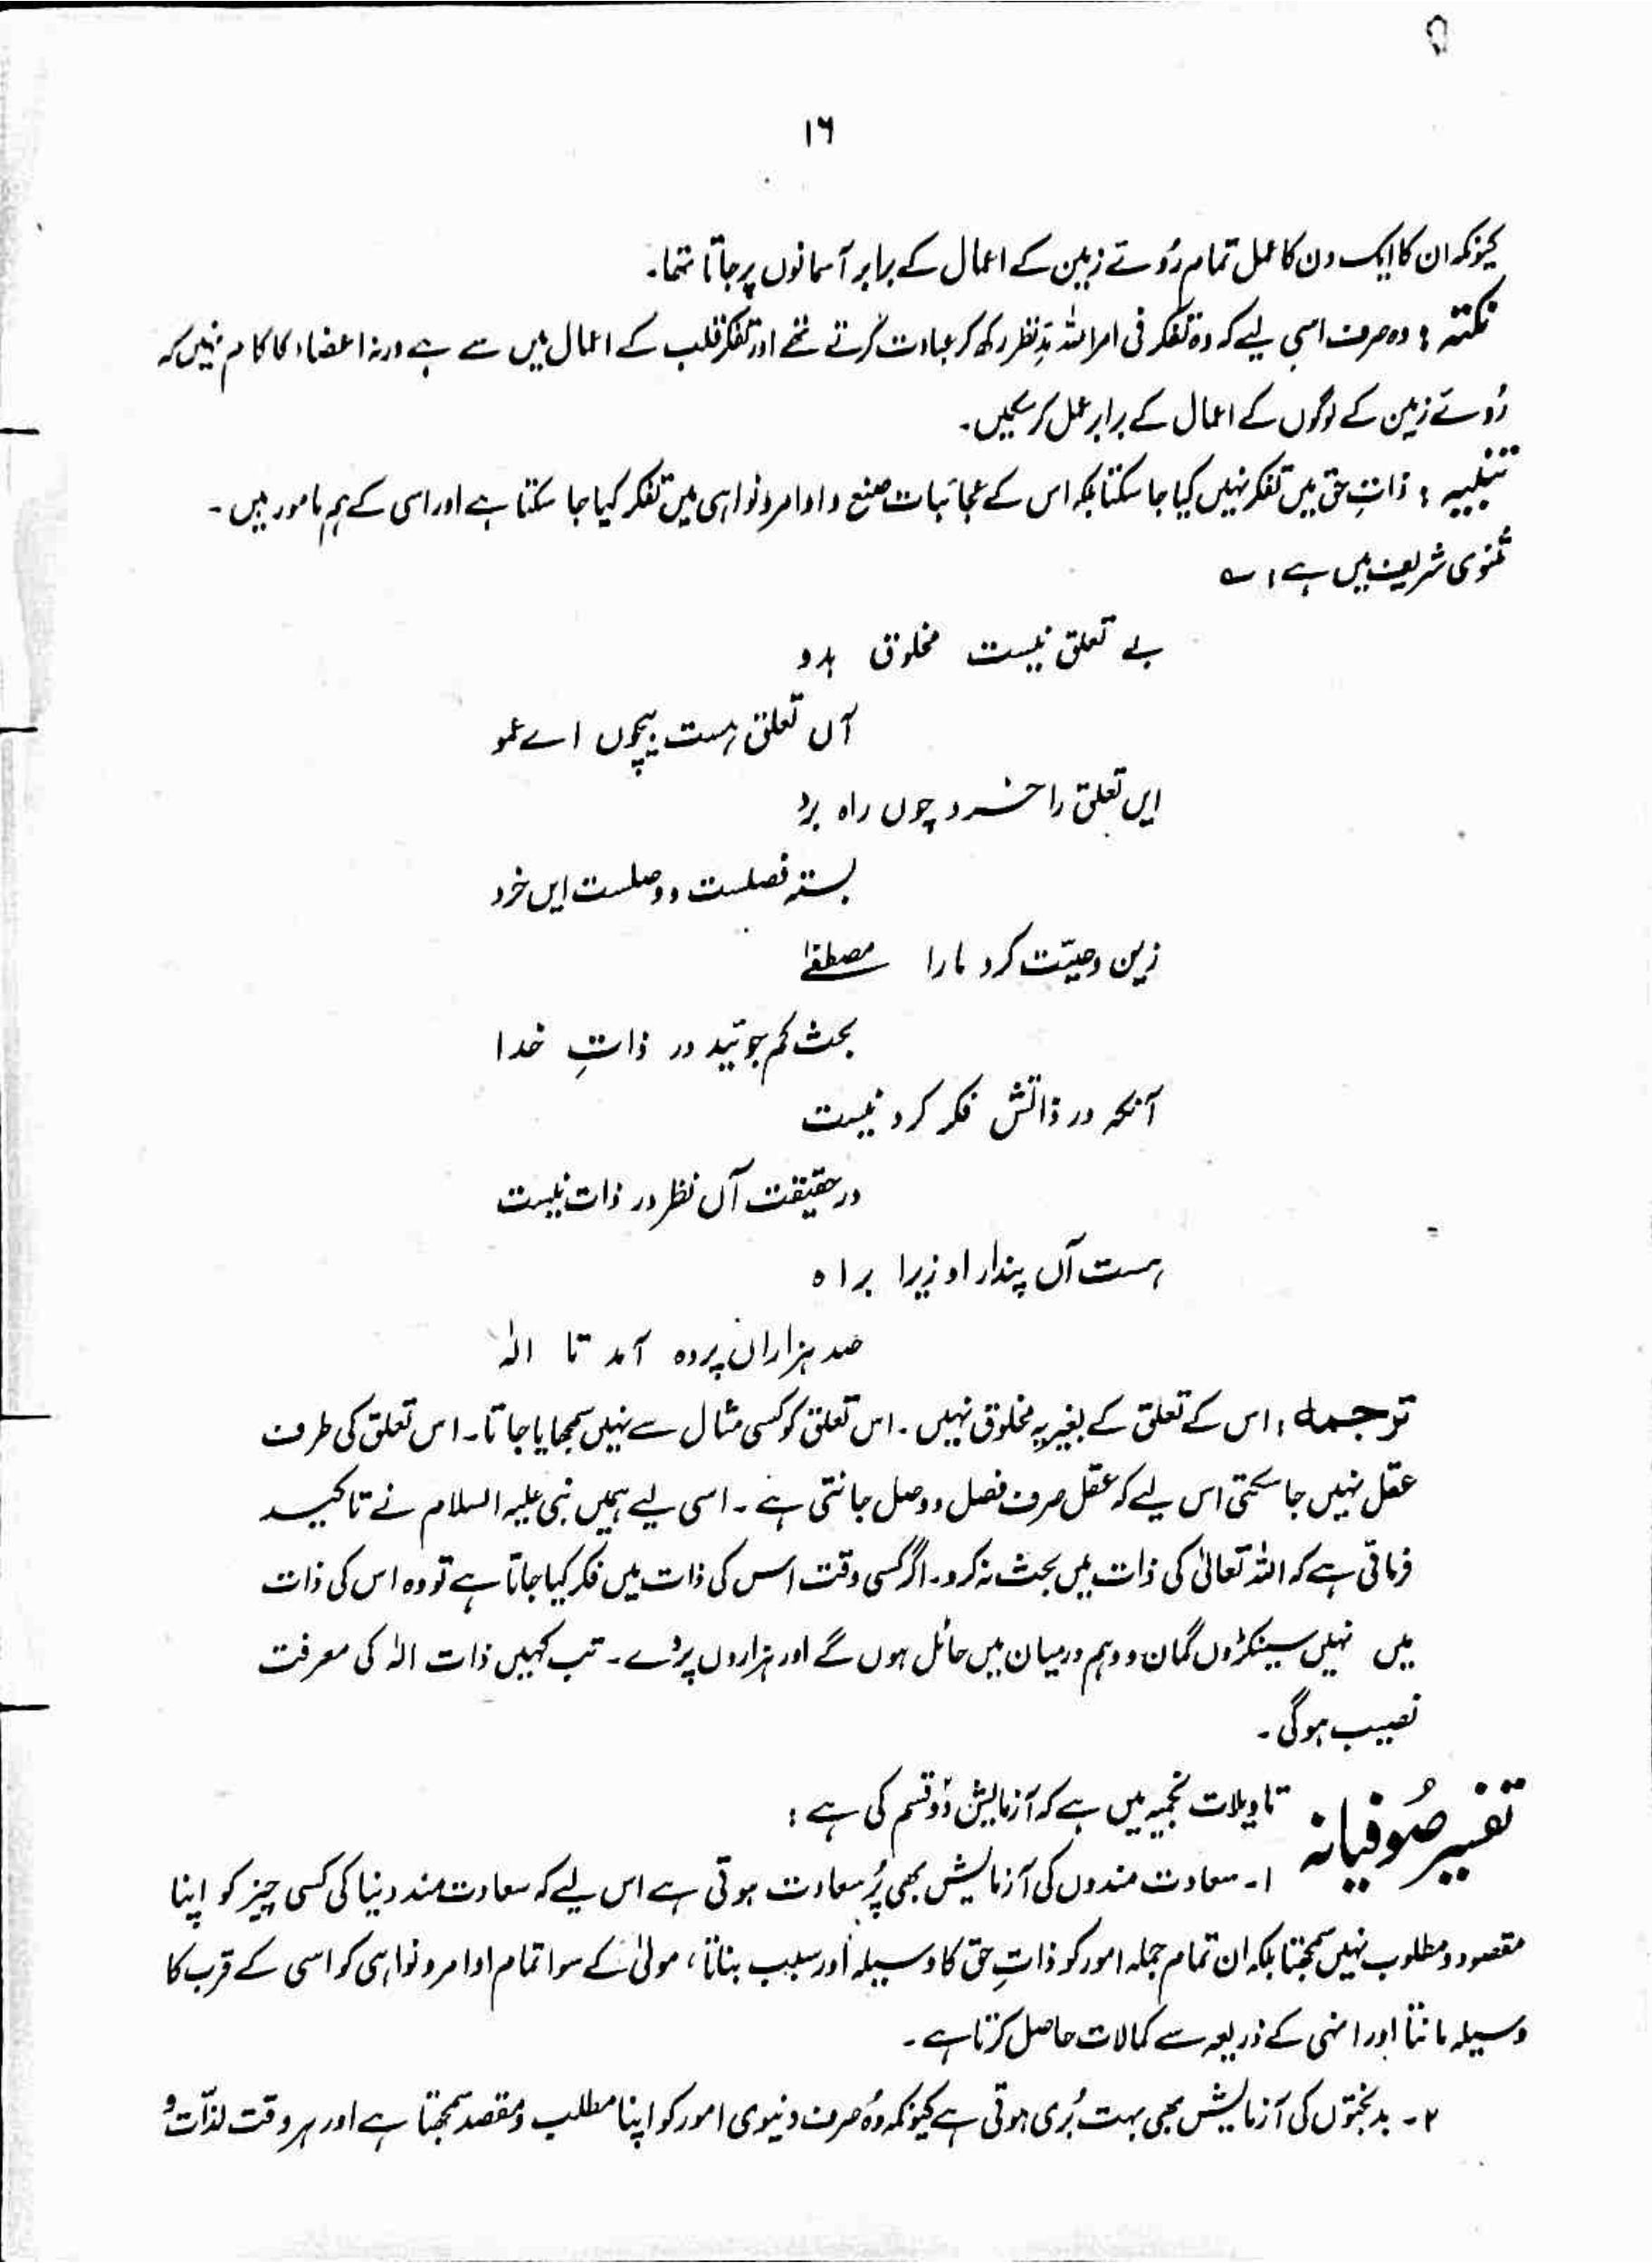 ١٦
کیونکہ ان کا ایک دن کا عمل تمام رُوئے زمین کے اعمال کے برابر آسمانوں پر جاتا تھا۔
نکتہ : وہ صرف اسی لیے کہ وہ تفکر فی امر اللہ مدِّ نظر رکھ کر عبادت کرتے تھے اور تفکر قلب کے اعمال میں سے ہے ورنہ اعضاء کا کام نہیں کہ
رُوئے زمین کے لوگوں کے اعمال کے برابر عمل کر سکیں۔
تنبیہ : ذاتِ حق میں تفکر نہیں کیا جا سکتا بلکہ اس کے عجائبات صنع و اوامر و نواہی میں تفکر کیا جا سکتا ہے اور اسی کے ہم مامور ہیں۔
مثنوی شریف میں ہے : ؎
بے تعلق نیست مخلوق بدو
آں تعلق ہست بیچوں اے عمو
ایں تعلق را خسرد چوں راہ برد
بستہ فصلست و وصلست ایں خرد
زین وصیّت کرد مارا مصطفےٰ
بحث کم جوئید در ذاتِ خدا
آنکہ در ذاتش فکر کرد نیست
در حقیقت آں نظر در ذات نیست
ہست آں پندار او زیرا براہ
صد ہزاراں پردہ آمد تا الٰہ
ترجمہ : اس کے تعلق کے بغیر یہ مخلوق نہیں۔ اس تعلق کو کسی مثال سے نہیں سمجھایا جاتا۔ اس تعلق کی طرف
عقل نہیں جا سکتی اس لیے کہ عقل صرف فصل و وصل جانتی ہے۔ اسی لیے ہمیں نبی علیہ السلام نے تاکید
فرمائی ہے کہ اللہ تعالیٰ کی ذات میں بحث نہ کرو۔ اگر کسی وقت اس کی ذات میں فکر کیا جاتا ہے تو وہ اس کی ذات
میں نہیں سینکڑوں گمان و وہم درمیان میں حائل ہوں گے اور ہزاروں پردے۔ تب کہیں ذات الٰہ کی معرفت
نصیب ہوگی۔
تفسیر صُوفیانہ تاویلات نجمیہ میں ہے کہ آزمایش دُو قسم کی ہے :
١۔ سعادت مندوں کی آزمایش بھی پُر سعادت ہوتی ہے اس لیے کہ سعادت مند دنیا کی کسی چیز کو اپنا
مقصود و مطلوب نہیں سمجھتا بلکہ ان تمام جملہ امور کو ذاتِ حق کا وسیلہ اور سبب بناتا، مولیٰ کے سوا تمام اوامر و نواہی کو اسی کے قرب کا
وسیلہ مانتا اور انہی کے ذریعہ سے کمالات حاصل کرتا ہے۔
٢۔ بدبختوں کی آزمایش بھی بہت بُری ہوتی ہے کیونکہ وُہ صرف دنیوی امور کو اپنا مطلب و مقصد سمجھتا ہے اور ہر وقت لذّات و